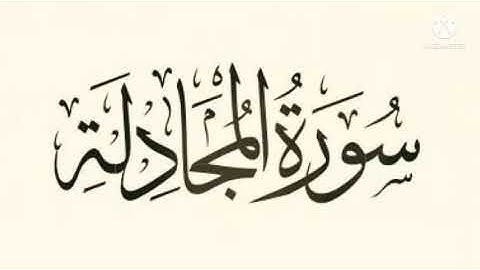 سُورَةُ الْمُجَادِلَةِ